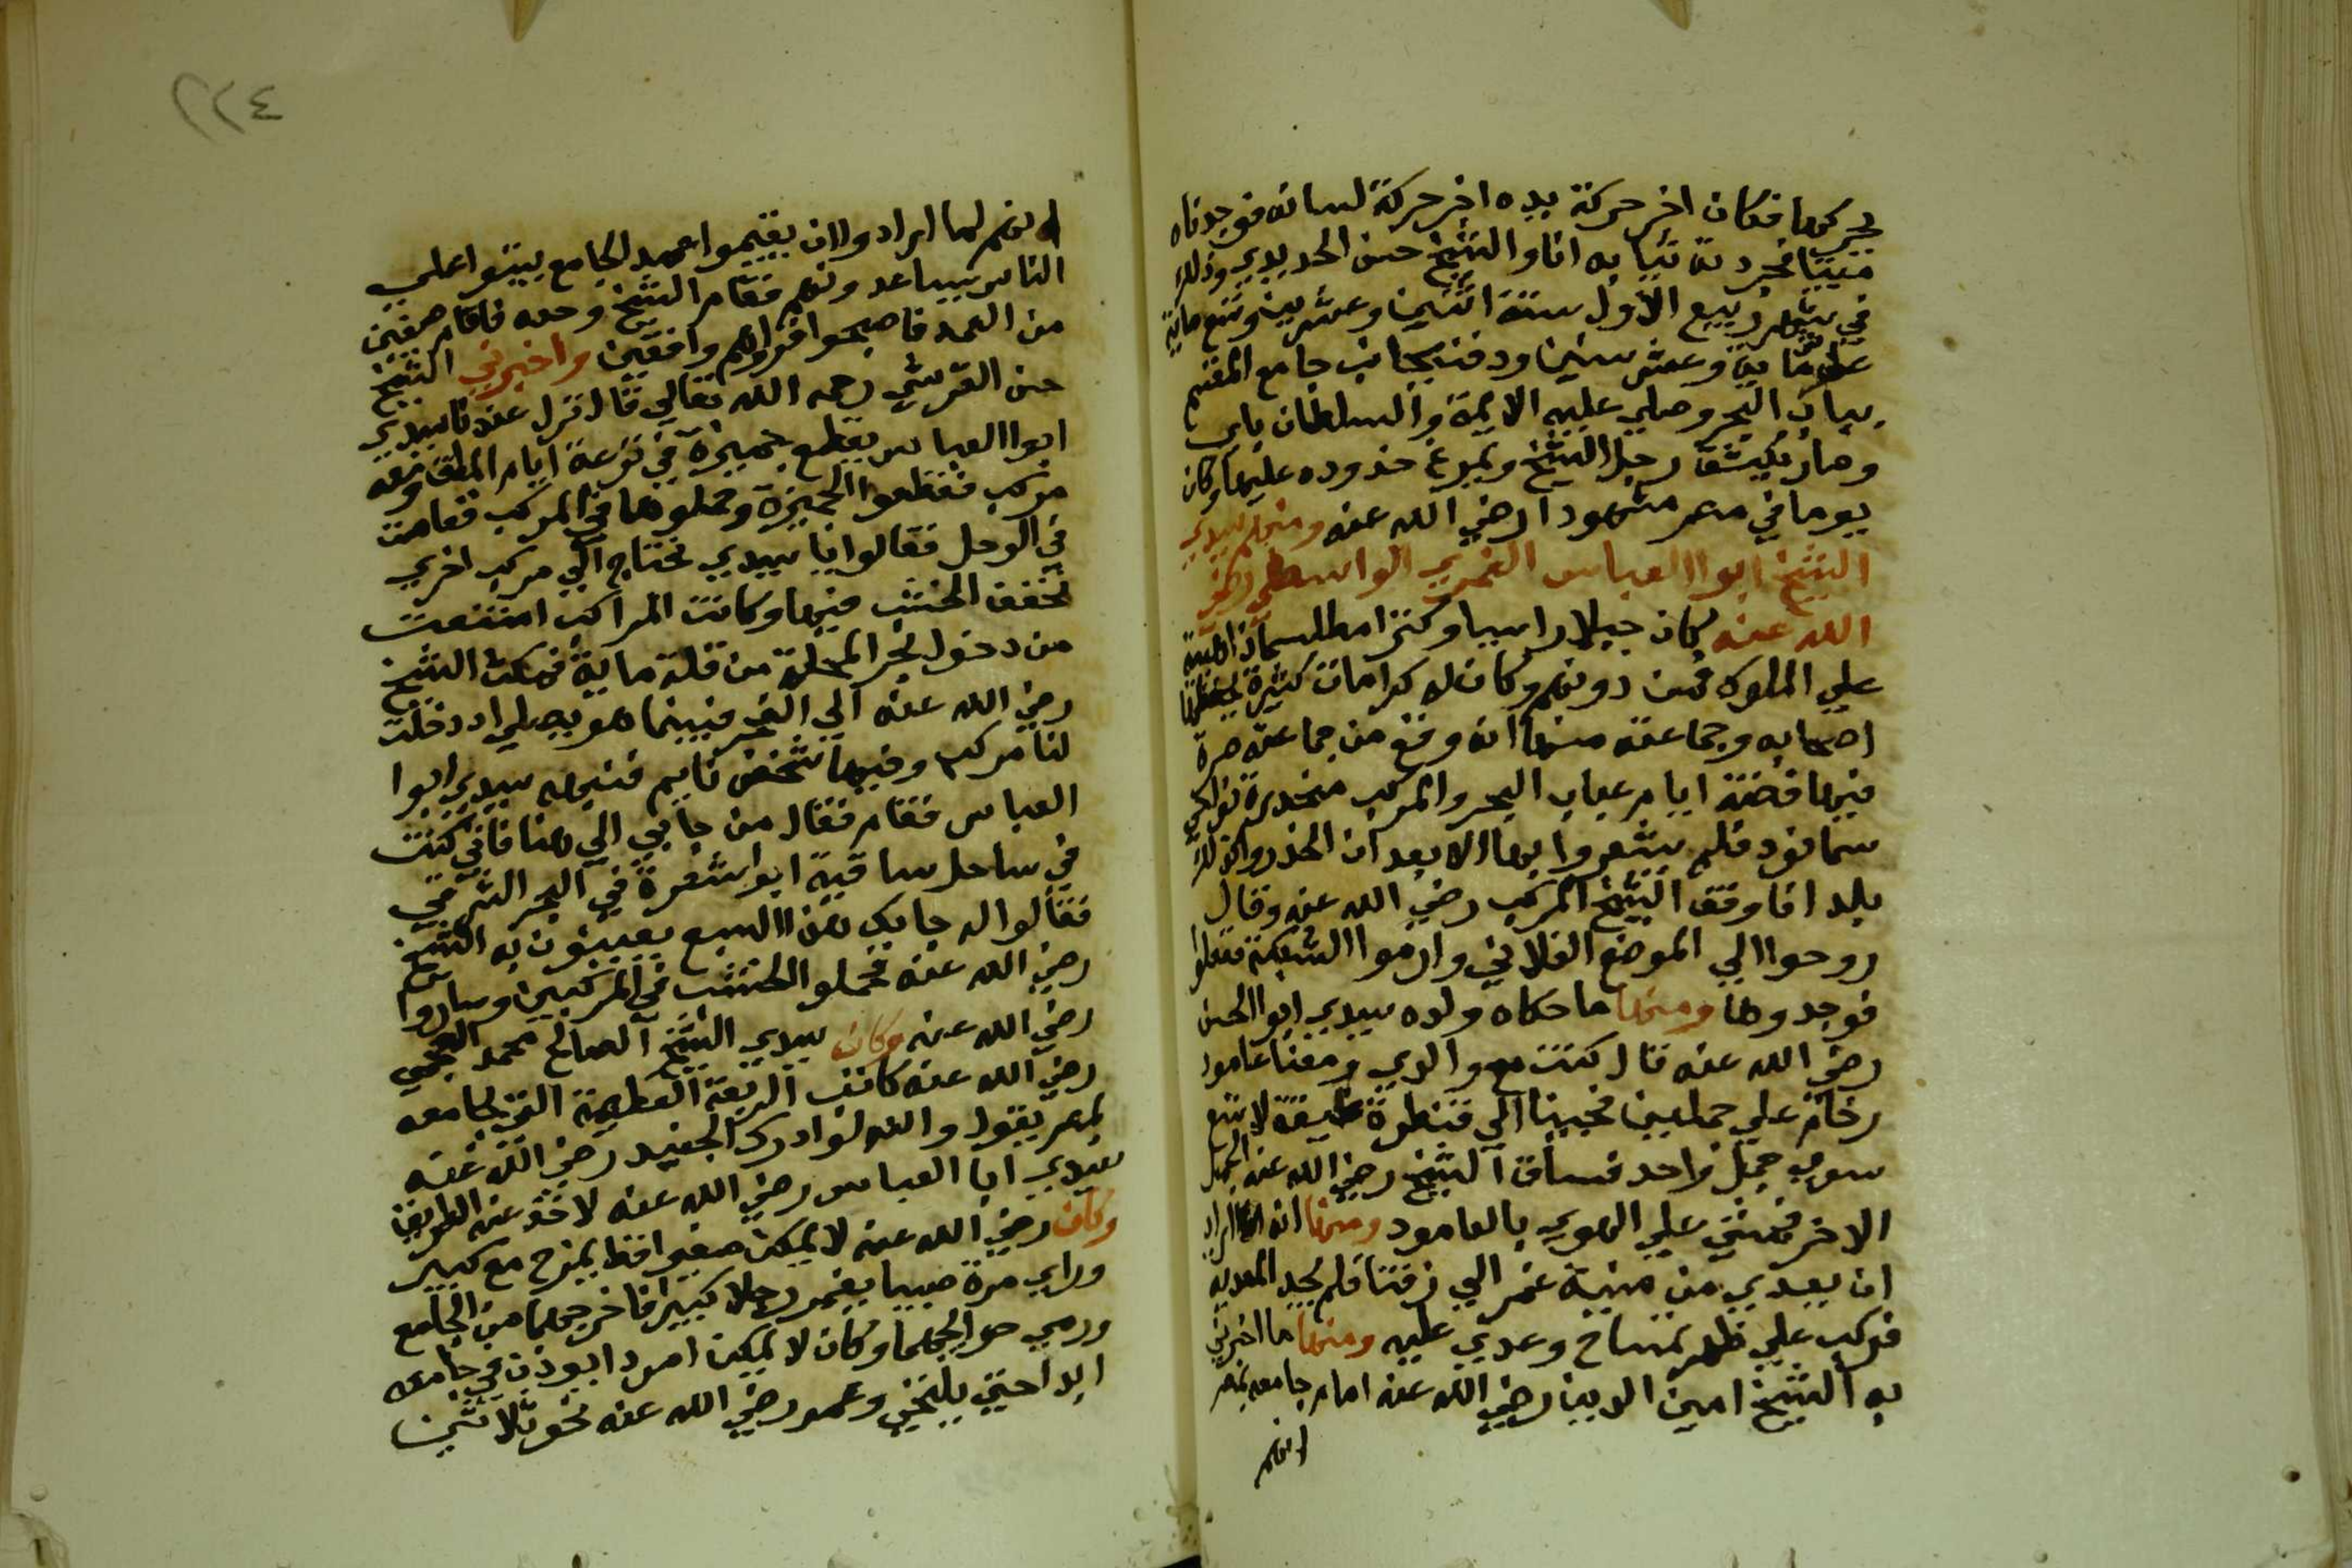 يحركها فكان اخر حركة يده اخر حركة لسانه فوجدناه
ميتا فجردته ثيابه انا والشيخ حسن الحديدي وذلك
في شهر ربيع الاول سنة اثنين وعشرين وتسع ماية
على ماية وعشر سنين ودفن بجانب جامع المقسم
بباب البحر وصلي عليه الايمة والسلطان باي
وصار يكشف رجل الشيخ ويمرغ خدوده عليها وكان
يوما في مصر مشهودا رضي الله عنه ومنهم سيدي
الشيخ ابوا العباس الغمري الواسطي رضي
الله عنه كان جبلا راسيا وكنزا مطلسما ذا هيبة
على الملوك فمن دونهم وكان له كرامات كثيرة يحفظها
اصحابه وجماعته منها انه وقع من جماعته صرة
فيها فضة ايام عباب البحر والمركب منحدرة نواحي
سمانود فلم يشعروا بها الا بعد ان انحدروا
بلد افا وقف الشيخ المركب رضي الله عنه وقال
روحوا الي الموضع الفلاني وارموا الشبكة ففعلوا
فوجدوها ومنها ما حكاه ولده سيدي ابوا الحسن
رضي الله عنه قال كنت مع والدي ومعنا عامود
رخام علي جملين فجينا الي قنطرة ضيقة لا تسع
سوي جمل واحد فساق الشيخ رضي الله عنه الجمل
الاخر فمشي علي الهوي بالعامود ومنها انه اراد
ان يعدي من منية غمر الي زفتا فلم يجد المعدية
فركب علي ظهر تمساح وعدي عليه ومنها ما اخبرني
به الشيخ امين الدين رضي الله عنه امام جامعه بمصر
انهم
٢٢٤
انهم لما ارادوا ان يقيموا عمد الجامع بيتوا علي
الناس يساعدونهم فقام الشيخ وحده فاقام صفين
من العمد فاصبحوا فراوهم واقفين واخبرني الشيخ
حسن القرشي رحمه الله تعالي قال نزل عندنا سيدي
ابوا العباس يقطع جميزة في ترعة ايام الملق ومعه
مركب فقطعوا الجميزة وحملوها في المركب فغاصت
في الوحل فقالوا يا سيدي نحتاج الي مركب اخري
نخفف الخشب فيها وكانت المراكب امتنعت
من دخول بحر المحلة من قلة مايه فمكث الشيخ
رضي الله عنه الي الفجر فبينما هو يصلي اذ دخلت
لنا مركب وفيها شخص نايم فنبهه سيدي ابوا
العباس فقام فقال من جابي الي هنا فاني كنت
في ساحل ساقية ابوا شعرة في البحر الشرقي
فقالوا له جابك هذا السبع يعنون به الشيخ
رضي الله عنه فحملوا الخشب في المركبين وساروا
رضي الله عنه وكان سيدي الشيخ الصالح محمد العجمي
رضي الله عنه كاتب الربعة العظيمة التي بجامعه
بمصر يقول والله لو ادرك الجنيد رضي الله عنه
سيدي ابا العباس رضي الله عنه لاخذ عنه الطريق
وكان رضي الله عنه لا يمكن صغيرا قط يمزح مع كبير
وراي مرة صبيا يغمز رجلا كبيرا فاخرجهما من الجامع
ورمي حوايجهما وكان لا يمكن امرد ايوذن في جامعه
ابدا حتي يلتحي وعمر رضي الله عنه نحو ثلاثين